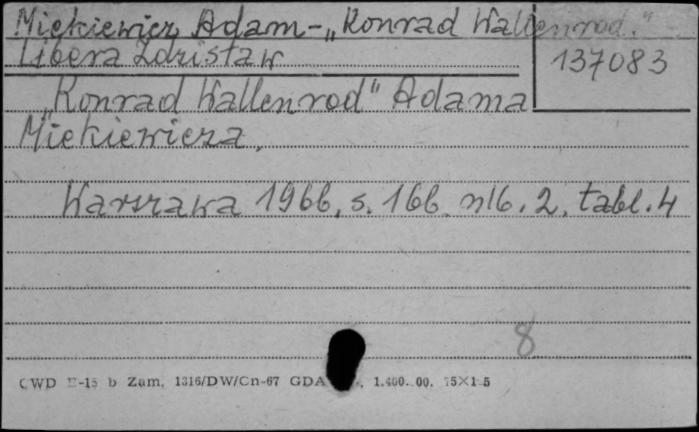 Mickiewicz Adam - „Konrad Wallenrod."
Libera Zdzisław
137083
„Konrad Wallenrod" Adama
Mickiewicza.
Warszawa 1966, s. 166 nlb. 2, tabl. 4
8
CWD E-15 b Zam. 1316/DW/Cn-67 GDA